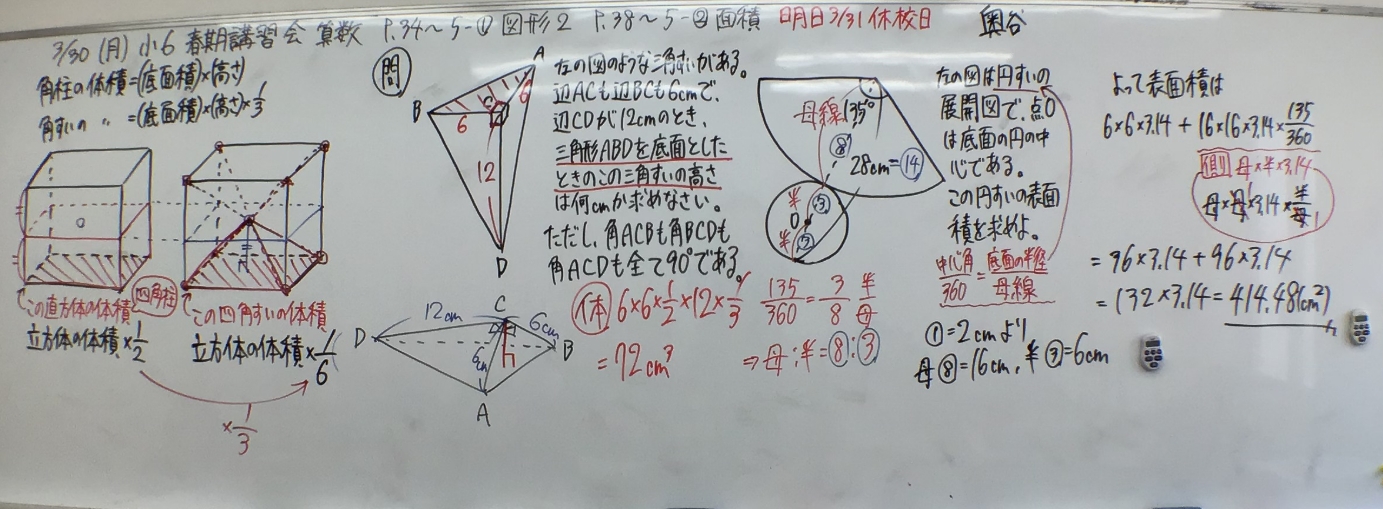 3/30 (月) 小6 春期講習会 算数 P.34〜5-① 図形2 P.38〜5-② 面積 明日3/31休校日 奥谷
角柱の体積=(底面積)×(高さ)
角すいの 〃 =(底面積)×(高さ)×1/3
この直方体の体積 四角柱
立方体の体積×1/2
この四角すいの体積
立方体の体積×1/6
×1/3
問
A
B
C
6
6
12
D
左の図のような三角すいがある。
辺ACも辺BCも6cmで、
辺CDが12cmのとき、
三角形ABDを底面とした
ときのこの三角すいの高さ
は何cmか求めなさい。
ただし、角ACBも角BCDも
角ACDも全て90°である。
12cm
C
6cm
D
B
6cm
h
A
体 6×6×1/2×12×1/3
=72cm³
母線
135°
⑧
28cm=⑭
半
③
O
半
③
135/360=3/8 半/母
⇒母:半=⑧:③
左の図は円すいの
展開図で、点O
は底面の円の中
心である。
この円すいの表面
積を求めよ。
中心角/360=底面の半径/母線
①=2cmより
母⑧=16cm、半③=6cm
よって表面積は
6×6×3.14+16×16×3.14×135/360
側 母×半×3.14
母×母×3.14×半/母
=36×3.14+96×3.14
=132×3.14=414.48(cm²)